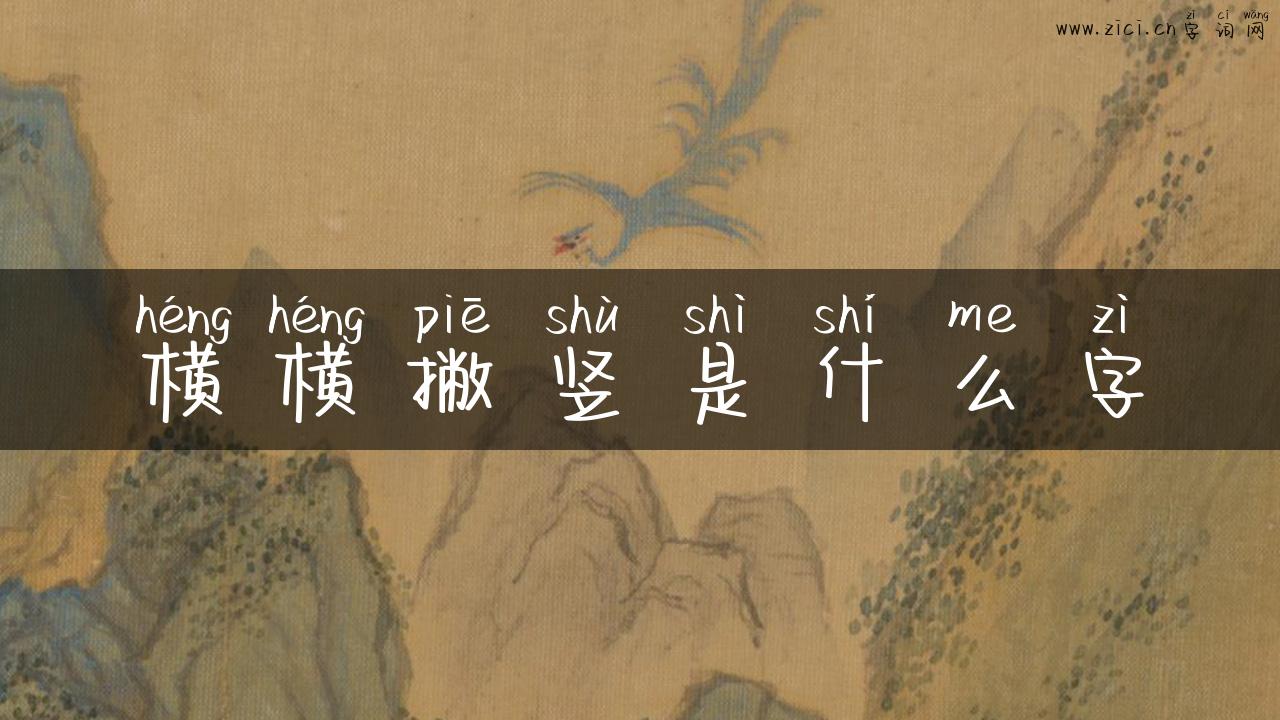 zì cí wǎng
www.zici.cn字词网
héng héng piě shù shì shí me zì
横横撇竖是什么字